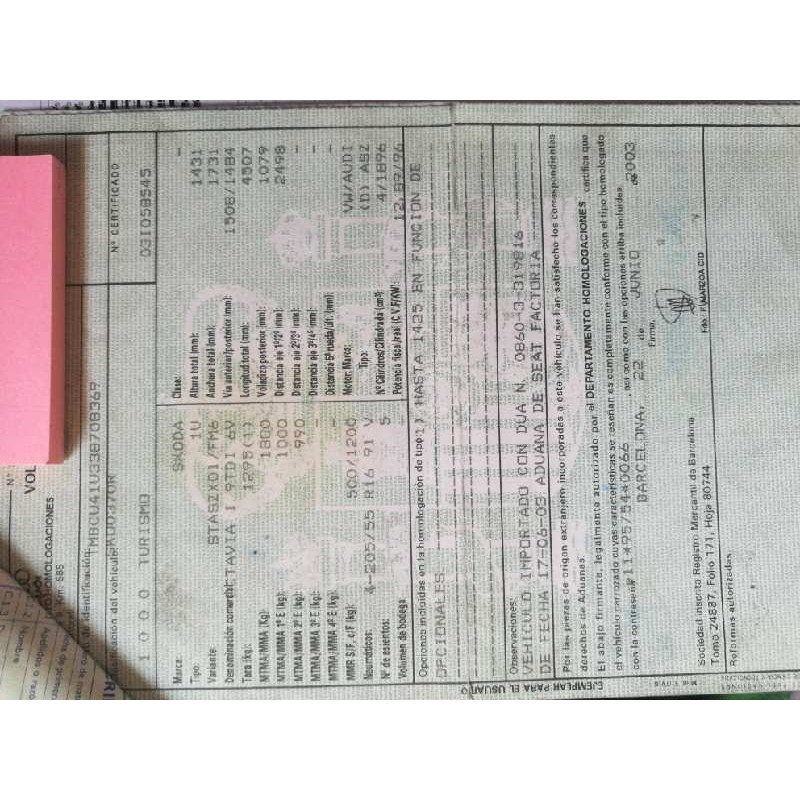 Nº
VOL
HOMOLOGACIONES
Km. 585
Nº CERTIFICADO
03I058545
TMBCU41U338708369
1 0 0 0 TURISMO
Marca: SKODA
Tipo: 1U
Variante: STASZX01/FM6
OCTAVIA I 9TDI 6V
Tara (kg): 1295(1)
MTMA/MMA (kg): 1800
MTMA/MMA 1º E (kg): 1000
MTMA/MMA 2º E (kg): 990
MTMA/MMA 3º E (kg): -
MTMA/MMA 4º E (kg): -
MMR S/F, c/F (kg): 500/1200
Neumáticos: 4-205/55 R16 91 V
Nº de asientos: 5
Volumen de bodega:
Clase: -
Altura total (mm): 1431
Anchura total (mm): 1731
Vía anterior/posterior (mm): 1508/1484
Longitud total (mm): 4507
Voladizo posterior (mm): 1079
Distancia eje 1º/2º (mm): 2498
Distancia eje 2º/3º (mm): -
Distancia eje 3º/4º (mm): -
Distancia 5ª rueda/últ. (mm): -
Motor: Marca: VW/AUDI
Tipo: (D) ASZ
Nº Cilindros/Cilindrada (cm³): 4/1896
Potencia fiscal/real (C.V.F/KW):
Opciones incluidas en la homologación de tipo: 1) HASTA 1425 EN FUNCION DE
OPCIONALES
Observaciones:
VEHICULO IMPORTADO CON DUA N. 0860-3-019816
DE FECHA 17-06-03 ADUANA DE SEAT FACTORIA
Por las piezas de origen extranjero incorporadas a este vehículo se han satisfecho los correspondientes
derechos de Aduanas.
El abajo firmante, legalmente autorizado por el DEPARTAMENTO HOMOLOGACIONES, certifica que
el vehículo carrozado cuyas características se reseñan es completamente conforme con el tipo homologado
con la contraseña *11*95/54*0066, así como con las opciones arriba incluidas.
BARCELONA, 22 de JUNIO de 2003
Firma,
Sociedad Inscrita Registro Mercantil de Barcelona
Tomo 24887, Folio 171, Hoja 80744
Reformas autorizadas
EJEMPLAR PARA EL USUARIO